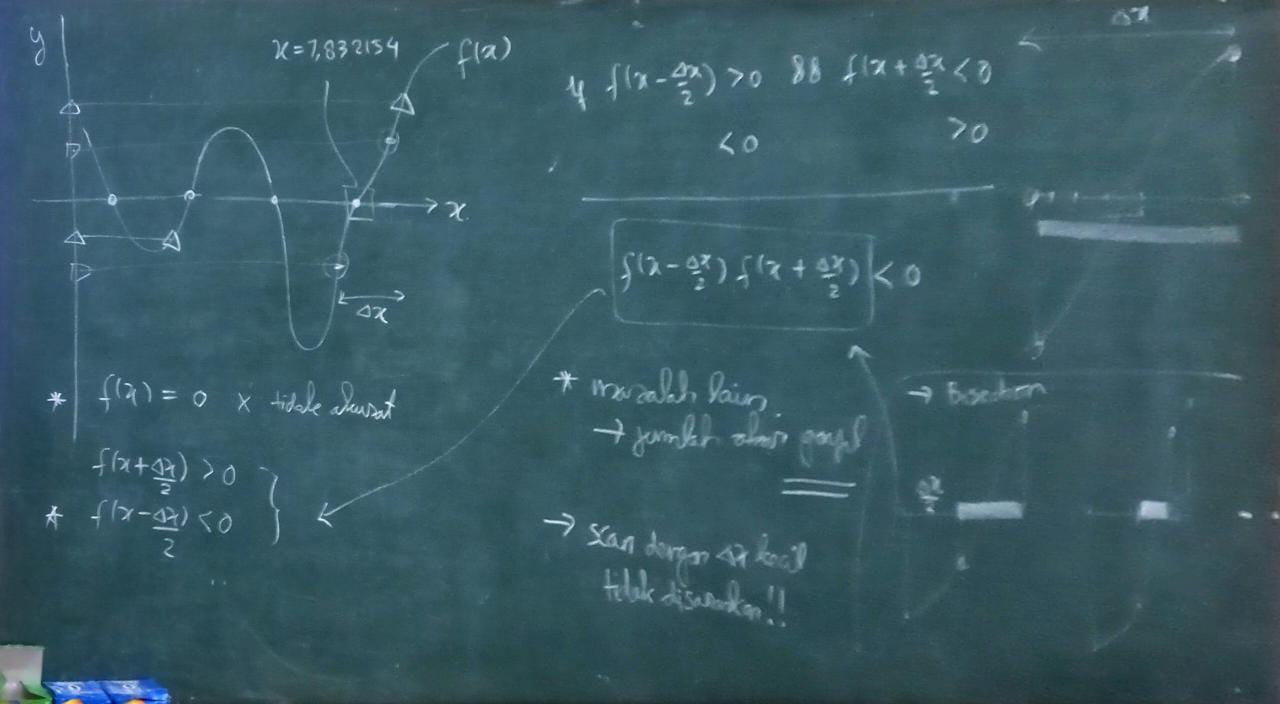 y
x=7,832154
f(x)
x
Δx
* f(x) = 0 x tidak akurat
f(x+Δx/2) > 0
* f(x-Δx/2) < 0
if f(x-Δx/2) > 0 && f(x+Δx/2 < 0
< 0 > 0
f(x-Δx/2) f(x+Δx/2) < 0
* masalah lain
→ jumlah akar ganjil
→ scan dengan Δx kecil
tidak disarankan!!
Δx
→ Bisection
Δx/2